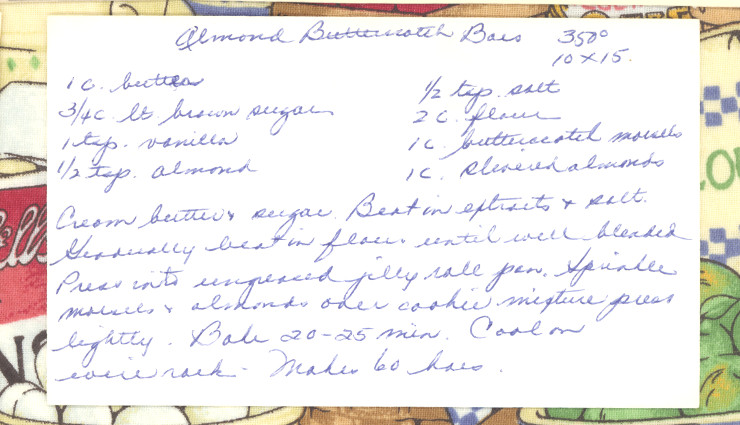 Almond Butterscotch Bars 350°
10 x 15.
1 c. butter
3/4 c lt brown sugar
1 tsp. vanilla
1/2 tsp. almond
1/2 tsp. salt
2 c. flour
1 c. butterscotch morsels
1 c. slivered almonds
Cream butter & sugar. Beat in extracts & salt.
Gradually beat in flour until well blended
Press into ungreased jelly roll pan. Sprinkle
morsels & almonds over cookie mixture press
lightly. Bake 20-25 min. Cool on
wire rack. Makes 60 bars.